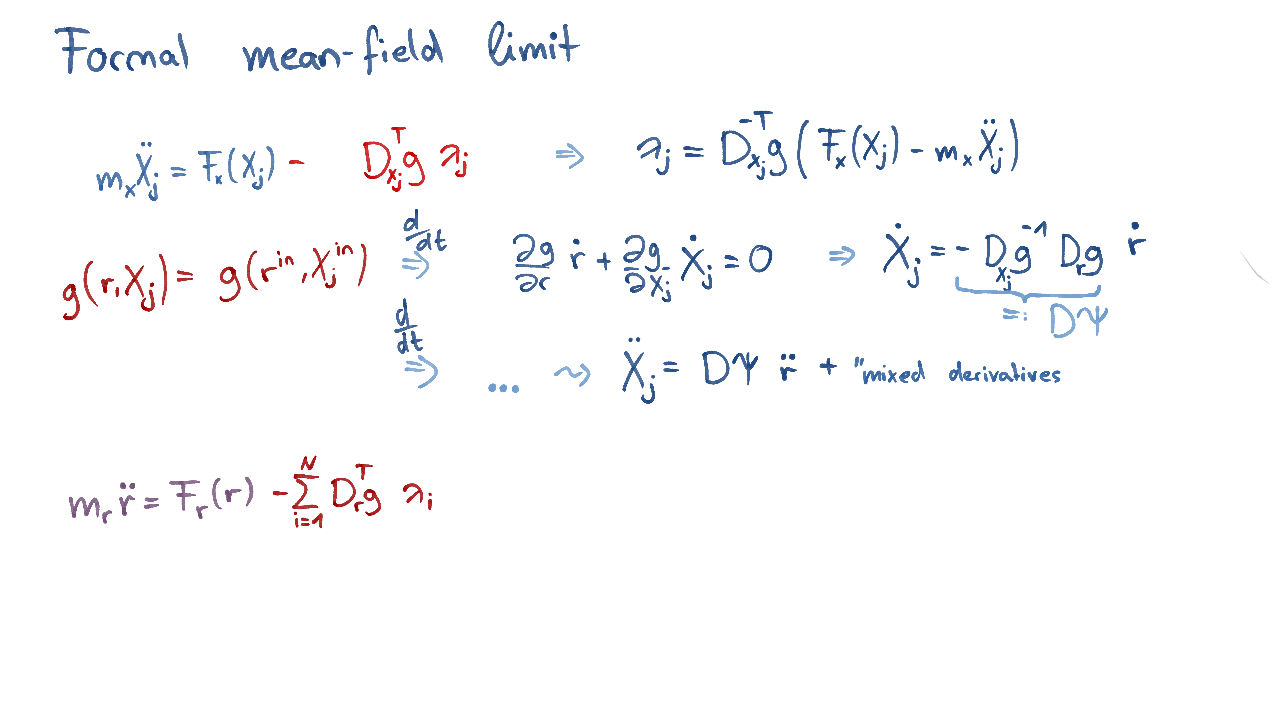 Formal mean-field limit
m_x Ẍ_j = F_x(X_j) - D_{x_j}^T g λ_j ⇒ λ_j = D_{x_j}^{-T} g (F_x(X_j) - m_x Ẍ_j)
g(r, X_j) = g(r^{in}, X_j^{in}) d/dt ⇒ ∂g/∂r ṙ + ∂g/∂X_j Ẋ_j = 0 ⇒ Ẋ_j = - D_{x_j} g^{-1} D_r g ṙ
=: DΨ
d/dt ⇒ ... ⇝ Ẍ_j = DΨ r̈ + "mixed derivatives
m_r r̈ = F_r(r) - ∑_{i=1}^N D_r^T g λ_i